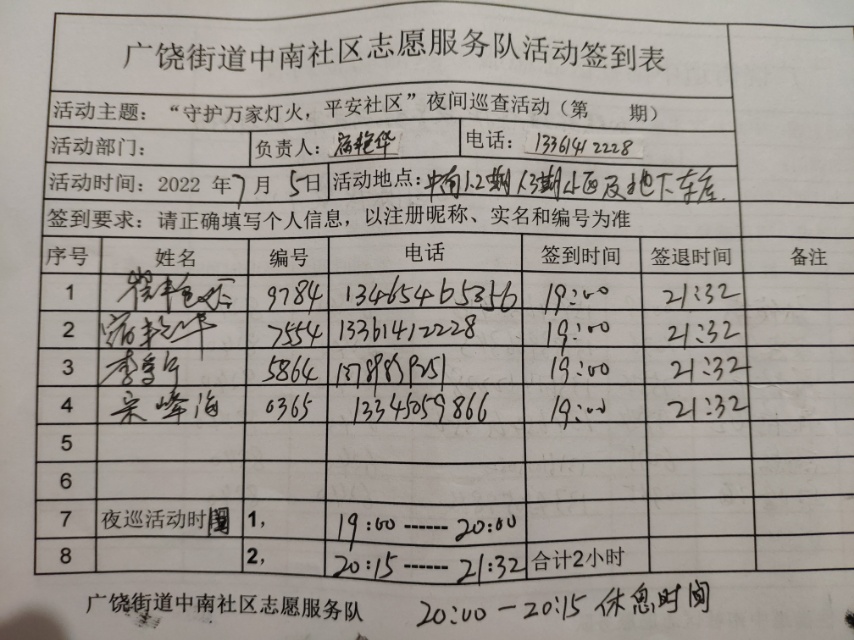 广饶街道中南社区志愿服务队活动签到表
活动主题：“守护万家灯火，平安社区”夜间巡查活动（第 期）
活动部门： 负责人： 电话：13361412228
活动时间：2022年7月5日 活动地点：中南1.2期 小区及地下车库
签到要求：请正确填写个人信息，以注册昵称、实名和编号为准
序号 姓名 编号 电话 签到时间 签退时间 备注
1 9784 13465465356 19:00 21:32
2 7554 13361412228 19:00 21:32
3 5864 19:00 21:32
4 宋峰海 0365 13345059866 19:00 21:32
5
6
7 夜巡活动时間 1， 19:00 ------ 20:00
8 2， 20:15 ------ 21:32 合计2小时
广饶街道中南社区志愿服务队 20:00－20:15 休息时间